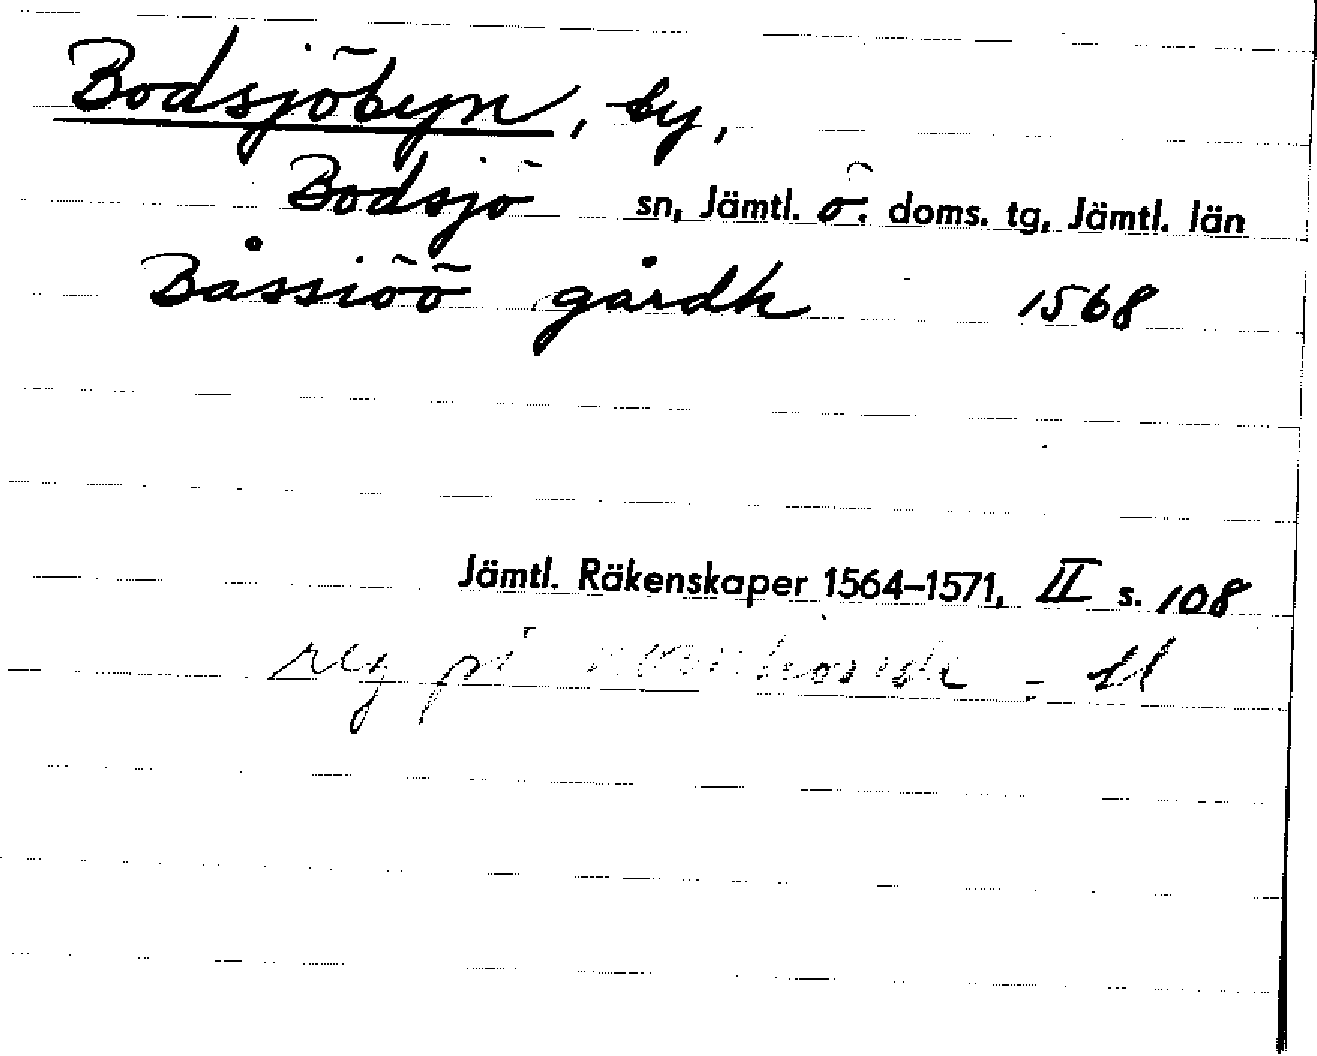 Bodsjöbyn, by,
Bodsjö sn, Jämtl. ö. doms. tg, Jämtl. län
Båssiöö gårdh 1568
Jämtl. Räkenskaper 1564–1571, II s. 108
på